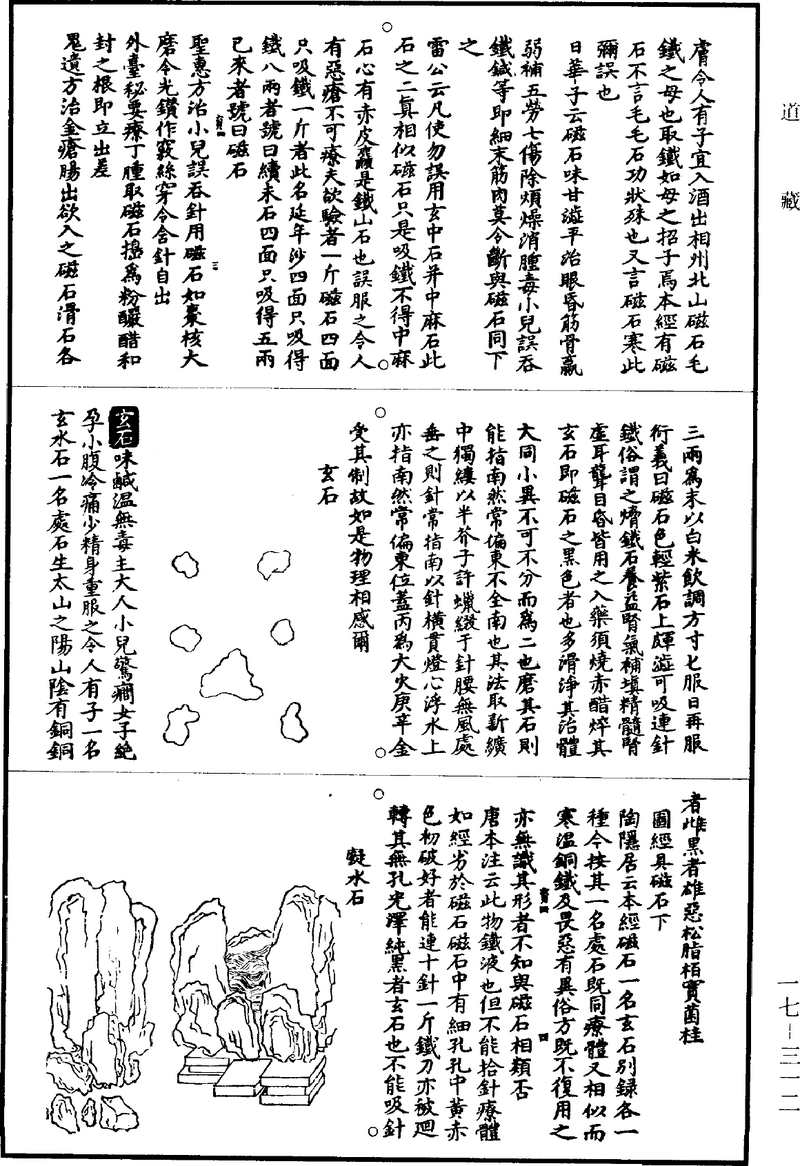 道藏
膚令人有子宜入酒出相州北山磁石毛
鐵之母也取鐵如母之招子焉本經有磁
石不言毛毛石功狀殊也又言磁石寒此
彌誤也
日華子云磁石味甘澁平治眼昏筋骨羸
弱補五勞七傷除煩燥消腫毒小兒誤吞
鐵鍼等即細末筋肉莫令斷與磁石同下
之
雷公云凡使勿誤用玄中石并中麻石此
石之二真相似磁石只是吸鐵不得中麻
石心有赤皮麤是鐵山石也誤服之令人
有惡瘡不可療夫欲驗者一斤磁石四面
只吸鐵一斤者此名延年沙四面只吸得
鐵八兩者號曰續未石四面只吸得五兩
已來者號曰磁石
聖惠方治小兒誤吞針用磁石如棗核大
磨令光鑽作竅絲穿令含針自出
外臺秘要療丁腫取磁石搗為粉釅醋和
封之根即立出差
鬼遺方治金瘡腸出欲入之磁石滑石各
三兩為末以白米飲調方寸匕服日再服
衍義曰磁石色輕紫石上皸澁可吸連針
鐵俗謂之熁鐵石養益腎氣補填精髓腎
虛耳聾目昏皆用之入藥須燒赤醋焠其
玄石即磁石之黑色者也多滑淨其治體
大同小異不可不分而為二也磨其石則
能指南然常偏東不全南也其法取新纊
中獨縷以半芥子許蠟綴于針腰無風處
垂之則針常指南以針橫貫燈心浮水上
亦指南然常偏東位蓋丙為大火庚辛金
受其制故如是物理相感爾
玄石
玄石味鹹溫無毒主大人小兒驚癎女子絕
孕小腹冷痛少精身重服之令人有子一名
玄水石一名處石生太山之陽山陰有銅銅
者雌黑者雄惡松脂栢實菌桂
圖經具磁石下
陶隱居云本經磁石一名玄石別録各一
種今按其一名處石既同療體又相似而
寒溫銅鐵及畏惡有異俗方既不復用之
亦無識其形者不知與磁石相類否
唐本注云此物鐵液也但不能拾針療體
如經劣於磁石磁石中有細孔孔中黃赤
色初破好者能連十針一斤鐵刀亦被迴
轉其無孔光澤純黑者玄石也不能吸針
凝水石
一七－三一二